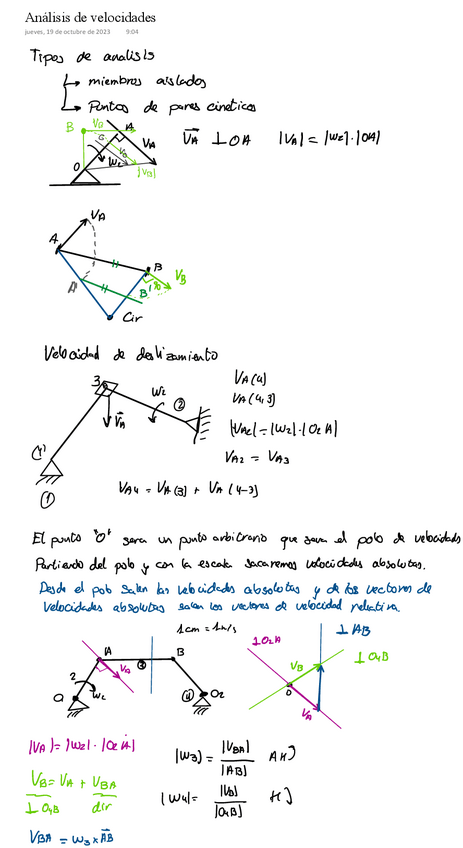 Análisis de velocidades
jueves, 19 de octubre de 2023 9:04
Tipos de analisis
miembros aislados
Puntos de pares cineticos
B VB A VA ω2 O |VB|
VA ⊥ OA |VA| = |ω2|·|OA|
VA
A B VB
A' B'
Cir
Velocidad de deslizamiento
3 ω2 2 VA
VA(4)
VA(4,3)
|VA2| = |ω2|·|O2A|
VA2 = VA3
1
VA4 = VA(3) + VA(4-3)
El punto "O" sera un punto arbitrario que sera el polo de velocidades
Partiendo del polo y con la escala sacaremos velocidades absolutas.
Desde el polo salen las velocidades absolutas y de los vectores de
velocidades absolutas salen los vectores de velocidad relativa.
1cm = 1m/s
A B 3 VA 2 ω2 O 4 O2
⊥O2A ⊥AB ⊥O4B VB O VA
|VA| = |ω2|·|O2A|
VB = VA + VBA
⊥O4B dir
VBA = ω3 x AB
|ω3| = |VBA| / |AB| AH
|ω4| = |VB| / |O4B| H